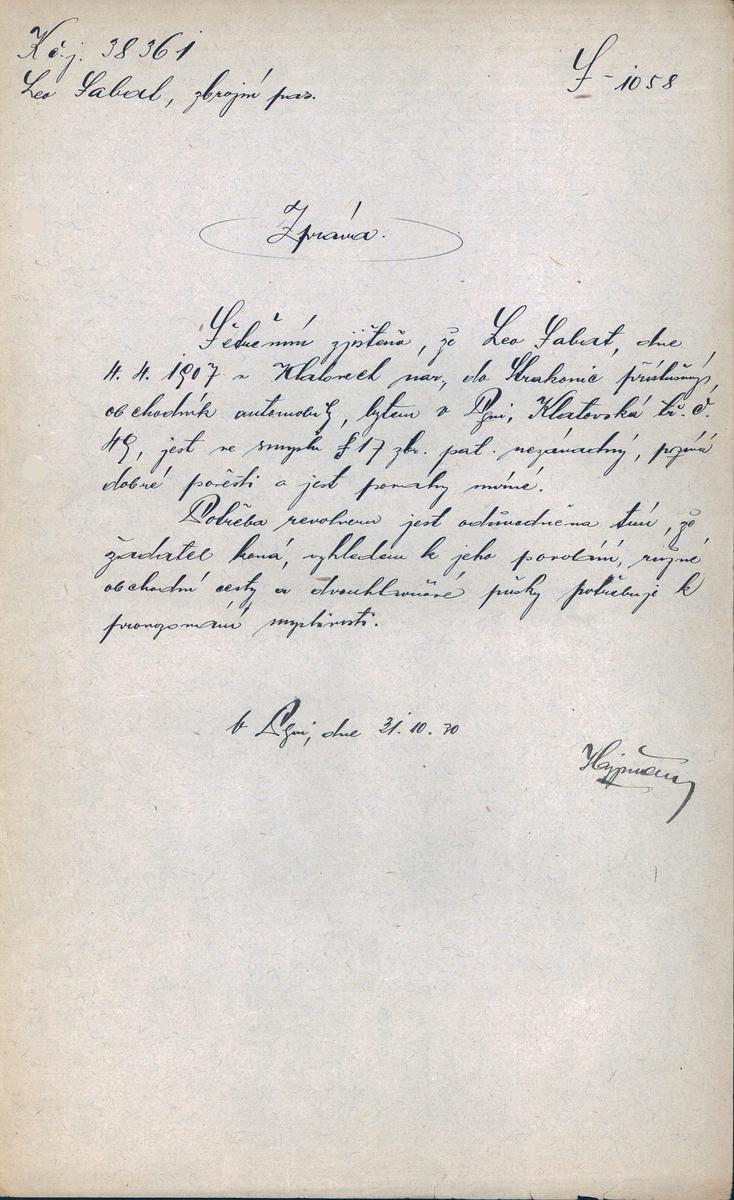 K č.j. 38361
S-1058
Leo Sabat, zbrojní pas.
Zpráva.
Šetřením zjištěno, že Leo Sabat, dne
4. 4. 1907 v Klatovech nar., do Strakonic příslušný,
obchodník automobily, bytem v Plzni, Klatovská tř. č.
49, jest ve smyslu § 17 zbr. pat. nezávadný, požívá
dobré pověsti a jest povahy mírné.
Potřeba revolveru jest odůvodněna tím, že
žadatel koná, vzhledem k jeho povolání, různé
obchodní cesty a dvouhlavňové pušky potřebuje k
provozování myslivosti.
V Plzni, dne 31. 10. 30